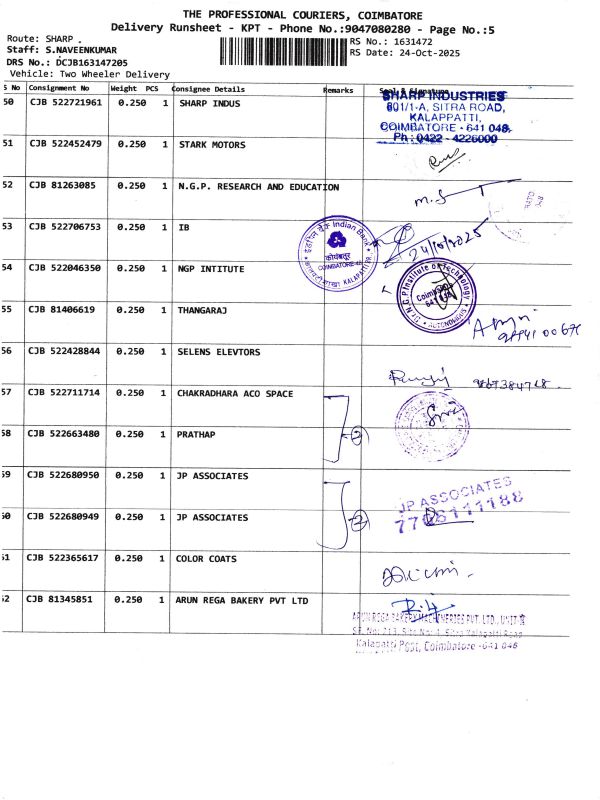 THE PROFESSIONAL COURIERS, COIMBATORE
Delivery Runsheet - KPT - Phone No.:9047080280 - Page No.:5
Route: SHARP .
Staff: S.NAVEENKUMAR
DRS No.: DCJB163147205
Vehicle: Two Wheeler Delivery
RS No.: 1631472
RS Date: 24-Oct-2025
S No Consignment No Weight PCS Consignee Details Remarks Seal & Signature
50 CJB 522721961 0.250 1 SHARP INDUS
SHARP INDUSTRIES
601/1-A, SITRA ROAD,
KALAPPATTI,
COIMBATORE - 641 048.
Ph : 0422 - 4226000
51 CJB 522452479 0.250 1 STARK MOTORS
52 CJB 81263085 0.250 1 N.G.P. RESEARCH AND EDUCATION
53 CJB 522706753 0.250 1 IB
इंडियन बैंक Indian Bank
कोयंबत्तूर
COIMBATORE-48
KALAPATTI BR.
24/10/2025
54 CJB 522046350 0.250 1 NGP INTITUTE
Dr. N.G.P Institute of Technology
Coimbatore
AUTONOMOUS
55 CJB 81406619 0.250 1 THANGARAJ
56 CJB 522428844 0.250 1 SELENS ELEVTORS
57 CJB 522711714 0.250 1 CHAKRADHARA ACO SPACE
58 CJB 522663480 0.250 1 PRATHAP
2
59 CJB 522680950 0.250 1 JP ASSOCIATES
60 CJB 522680949 0.250 1 JP ASSOCIATES
2
JP ASSOCIATES
7708111188
61 CJB 522365617 0.250 1 COLOR COATS
62 CJB 81345851 0.250 1 ARUN REGA BAKERY PVT LTD
ARUN REGA BAKERY MACHINERIES PVT. LTD., UNIT
Kalapatti Post, Coimbatore -641 048